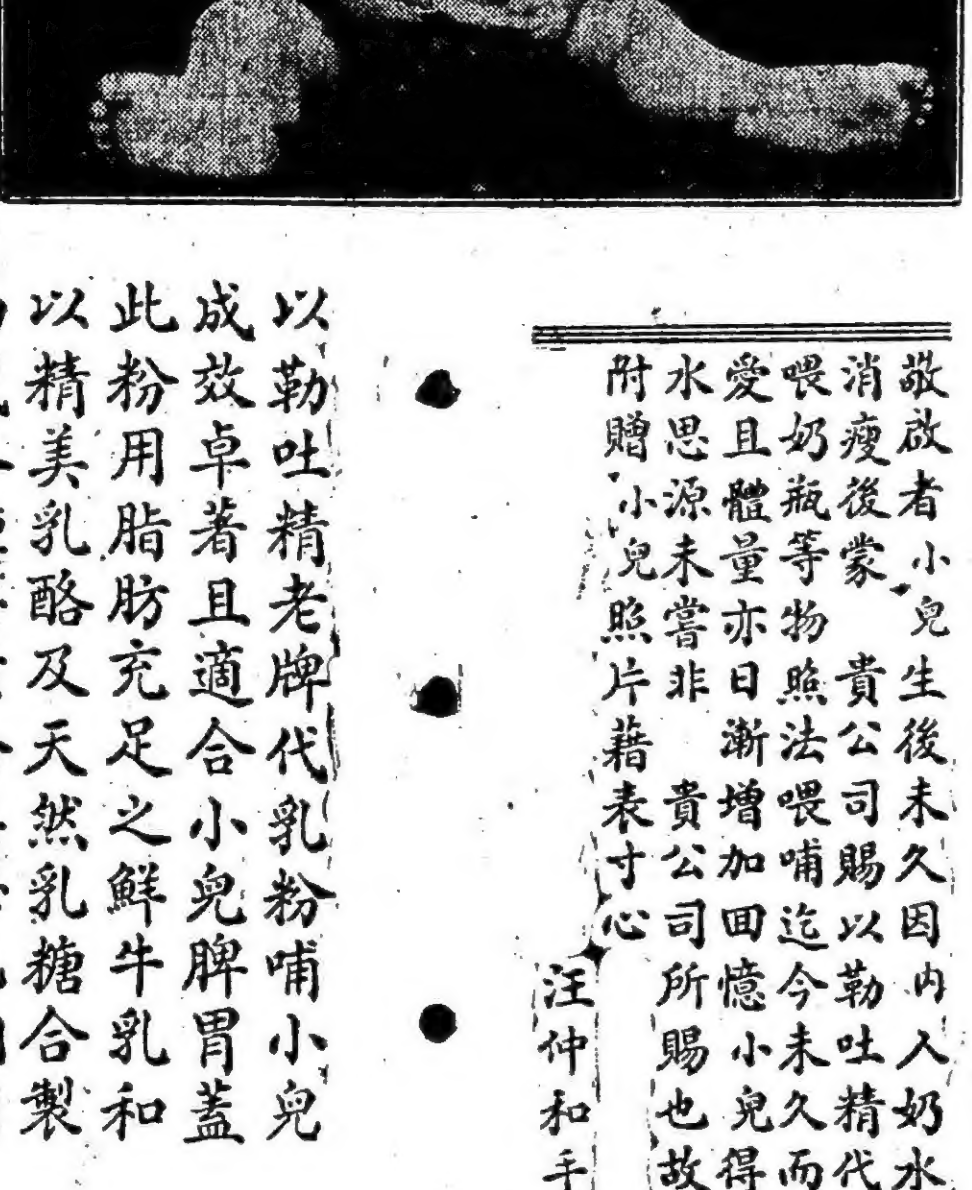 敬啟者小兒生後未久因内人奶水
消瘦後蒙 貴公司賜以勒吐精代
喂奶瓶等物照法喂哺迄今未久而
愛且體量亦日漸增加囬憶小兒得
水思源未嘗非 貴公司所賜也故
附贈小兒照片藉表寸心
汪仲和手
以勒吐精老牌代乳粉哺小兒
成效卓著且適合小兒脾胃蓋
此粉用脂肪充足之鮮牛乳和
以精美乳酪及天然乳糖合製